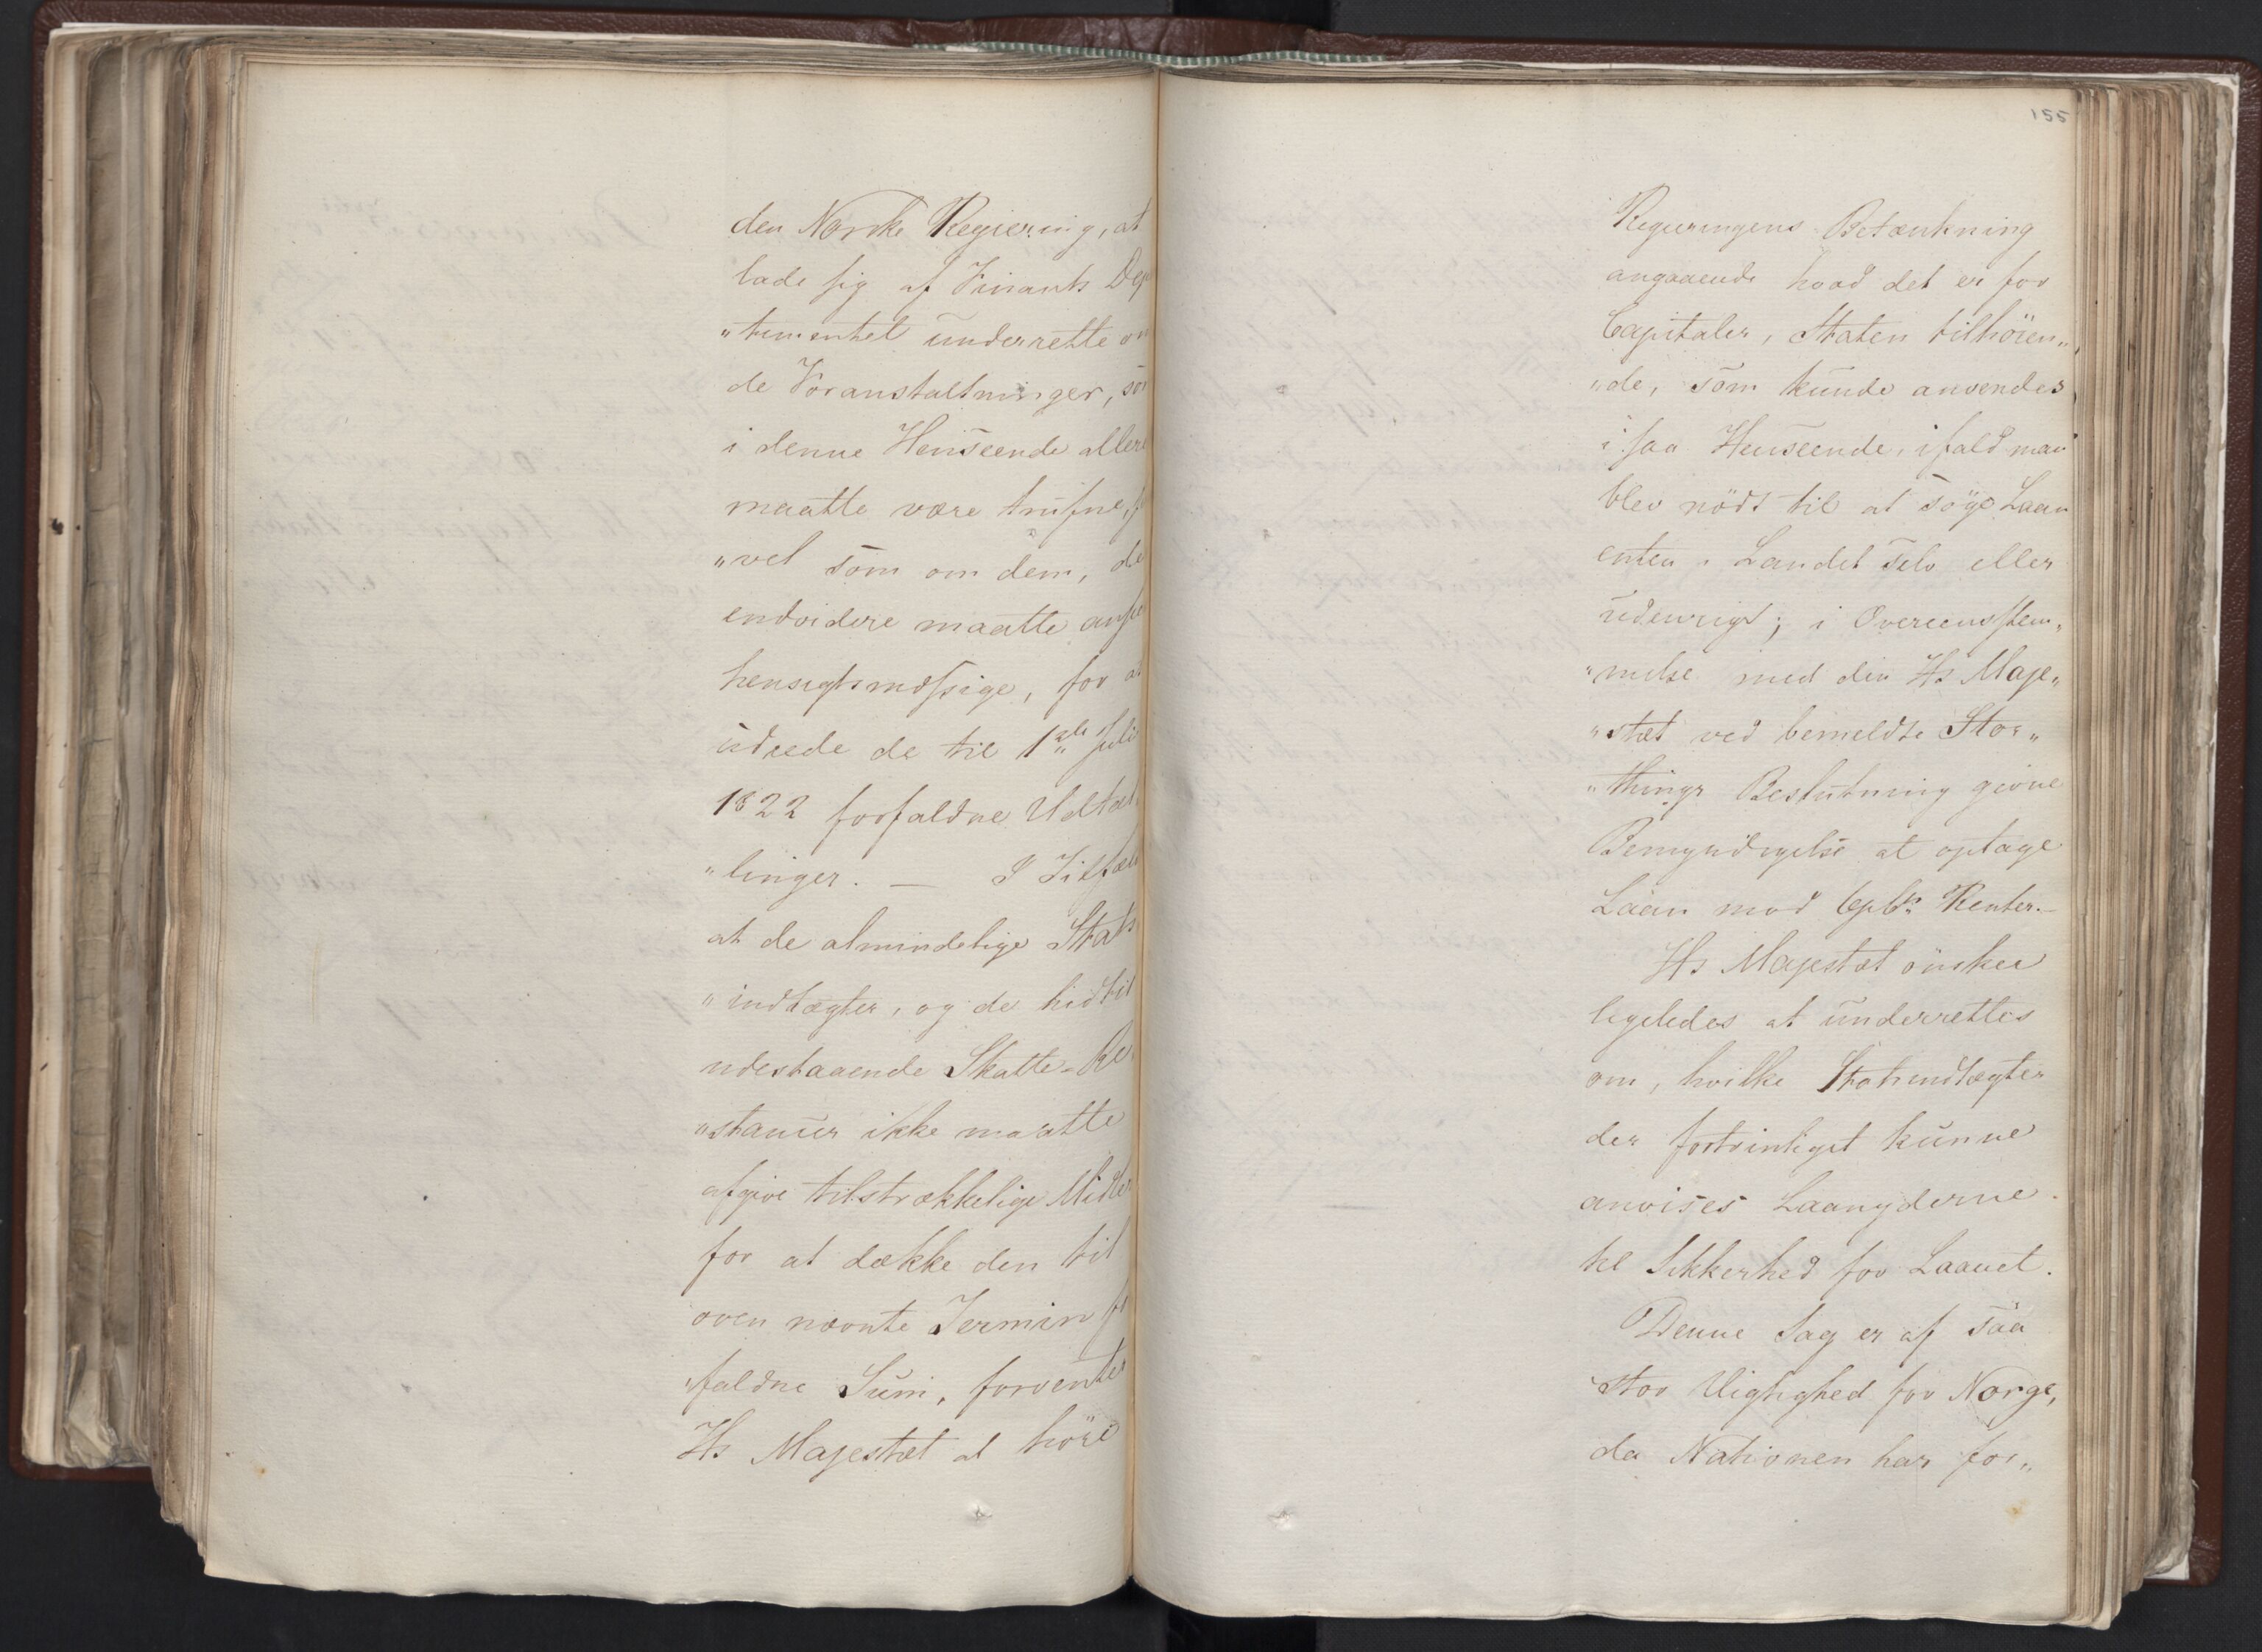 den Norske Regjering, at
lade sig af Finants Dep
„tementet underrette om
de Foranstaltninger, som
i denne Henseende allere
maatte være trufne, s
„vel som om dem, de
endvidere maatte anse
hensigtsmæssige, for at
udrede de til 1ste Juli
1822 forfaldne Udtæl
„linger. — I Tilfæl
at de almindelige Stats
„indtægter, og de hidtil
udestaaende Skatte-Re
„stancer ikke maatte
afgive tilstrækkelige Midler
for at dække den til
oven nævnte Termin fo
„faldne Sum, forventer
Hs Majestæt at höre
155
Regjeringens Betænkning
angaaende hvad det er for
Capitaler, Staten tilhören„
„de, som kunde anvendes
i saa Henseende, ifald man
blev nödt til at söge Laan
enten i Landet selv eller
udenrigs; i Overeensstem„
„melse med den Hs Maje„
„stæt ved bemeldte Stor„
„things Beslutning givne
Bemyndigelse at optage
Laan mod 6pCt Renter.—
Hs Majestæt önsker
ligeledes at underrettes
om, hvilke Statsindtægter
der fortrinligst kunne
anvises Laangyderne
til Sikkerhed for Laanet.
Denne Sag er af saa
stor Vigtighed for Norge,
da Nationen har for„